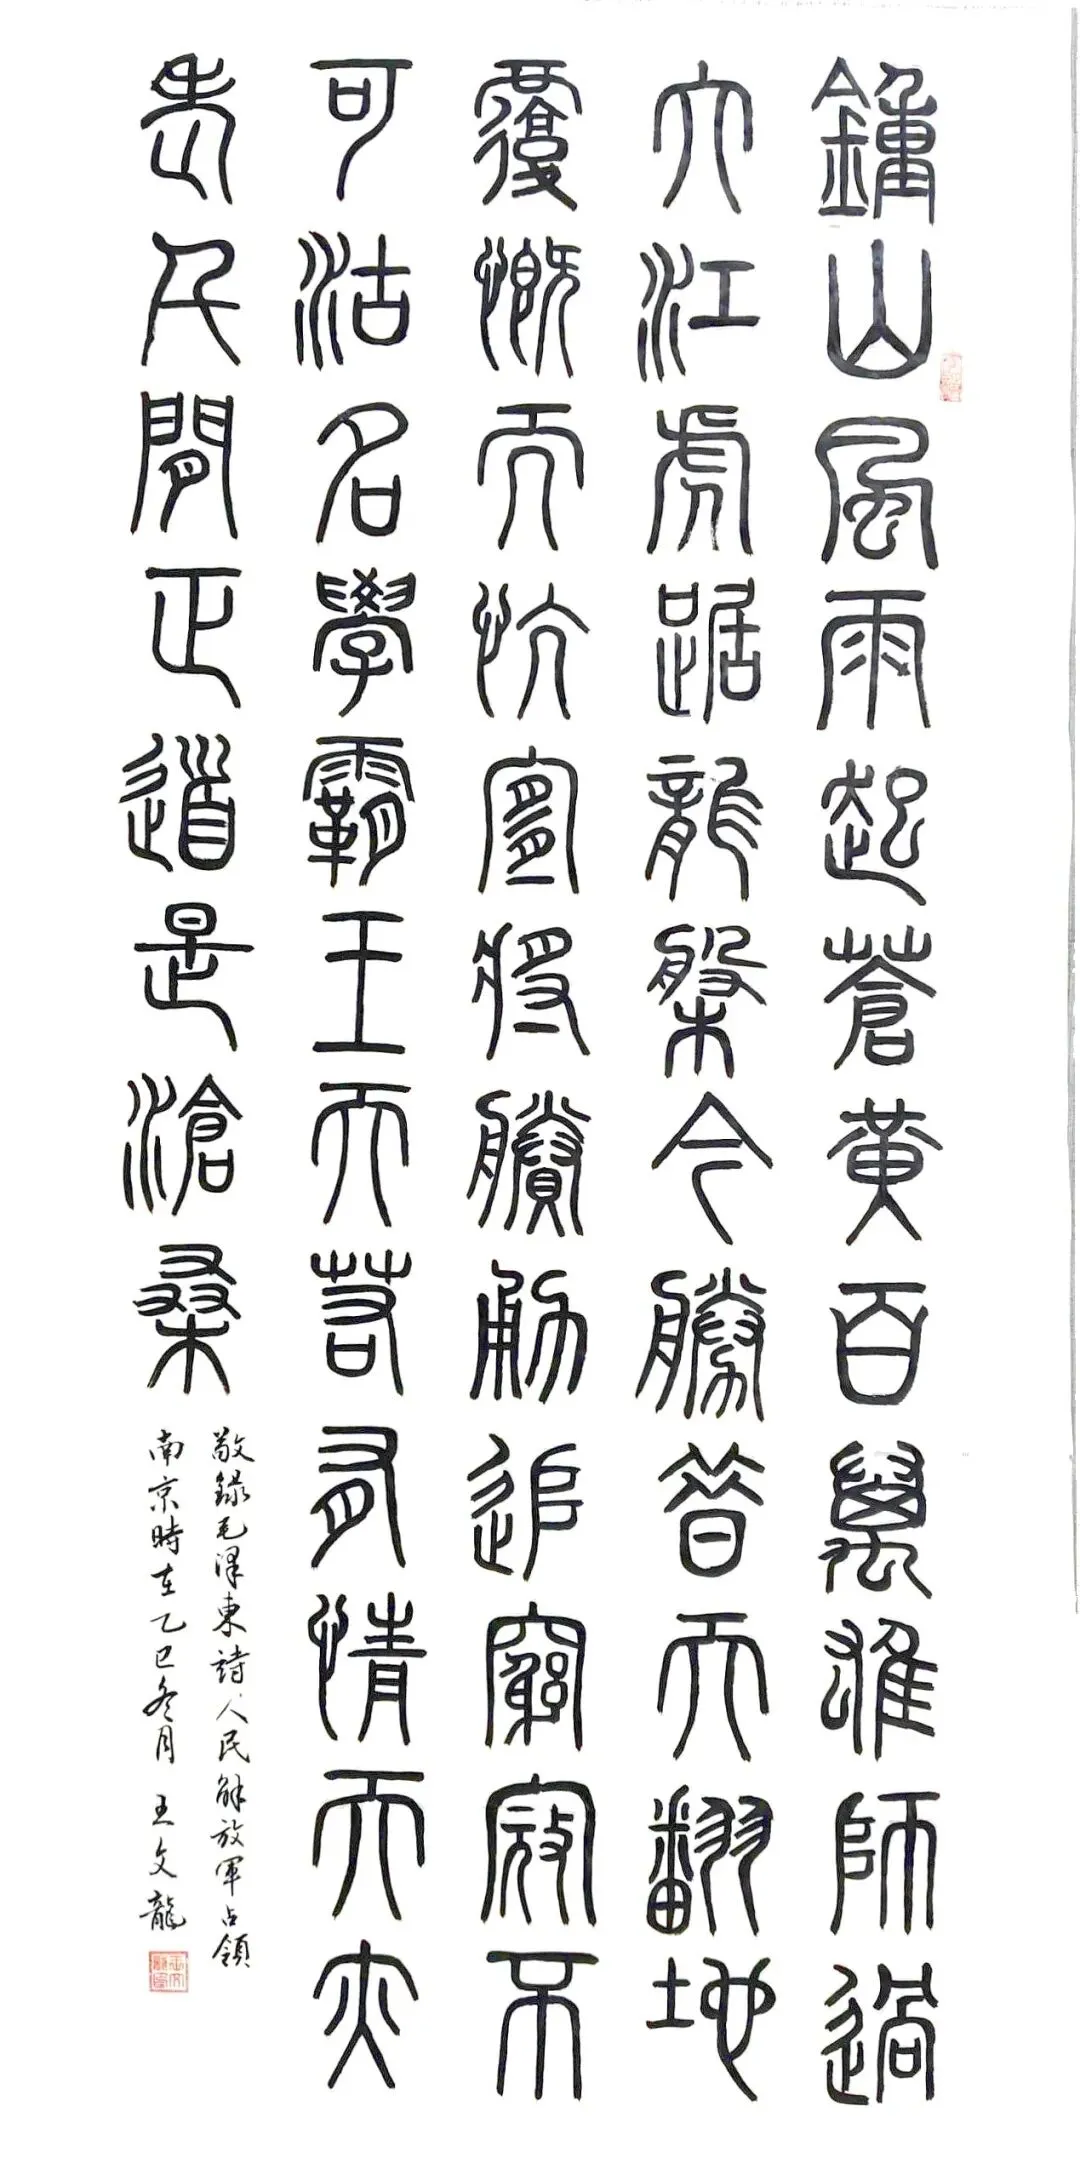 鍾山風雨起蒼黃百萬雄師過
大江虎踞龍槃今勝昔天翻地
覆慨而忼宜將賸勇追窮寇不
可沽名學霸王天若有情天亦
老人間正道是滄桑
敬錄毛澤東詩人民解放軍占領
南京時在乙巳冬月 王文龍